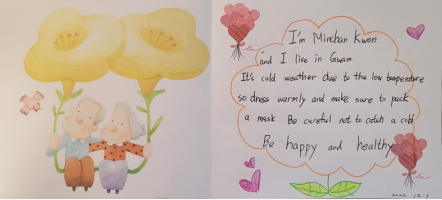 I'm Minchan Kwon
and I live in Gwam.
It's cold weather due to the low temperature
so dress warmly and make sure to pack
a mask Be careful not to catch a cold
Be happy and healthy
2022. 12. 1